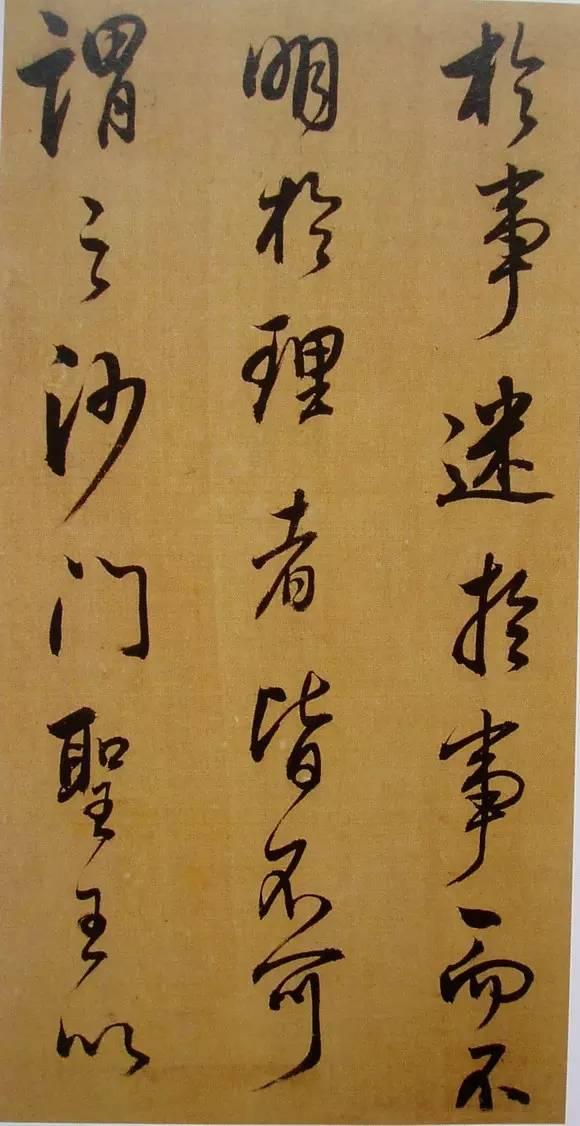 於事迷於事而不
明於理者皆不可
謂之沙门聖王以